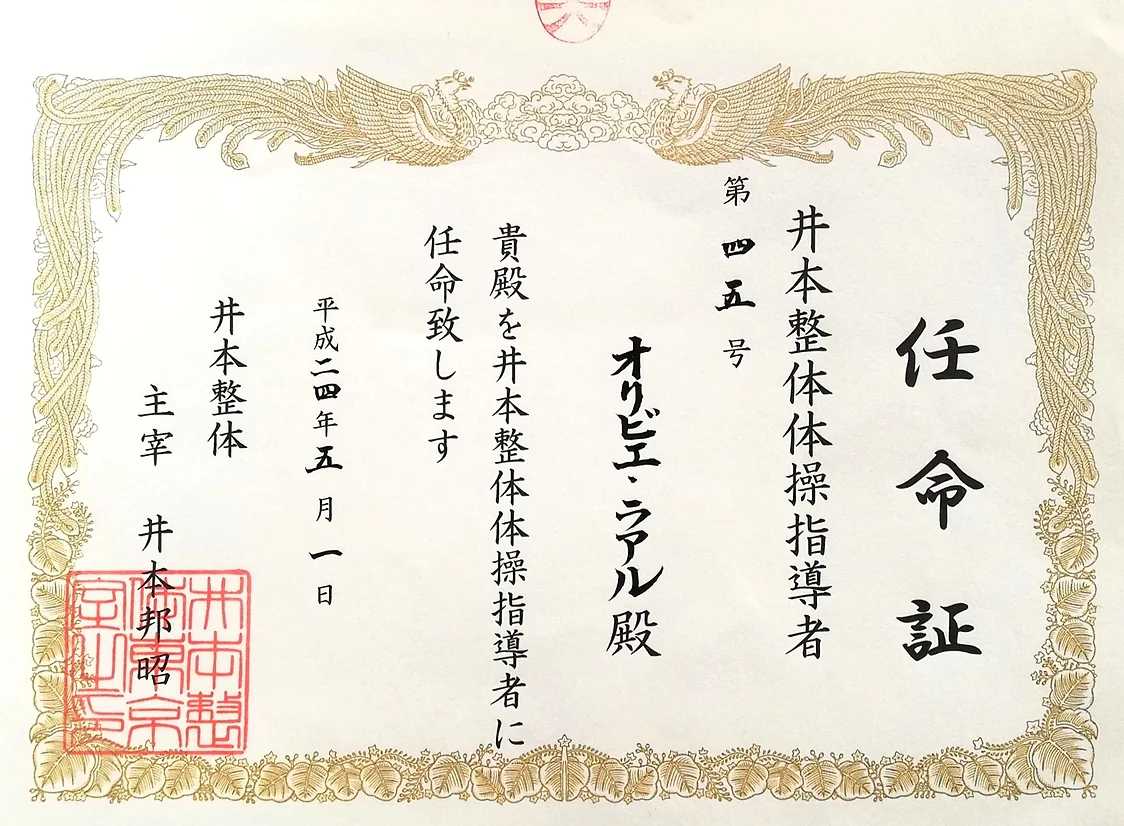 任命証
井本整体体操指導者
第四五号
オリビエ・ラアル殿
貴殿を井本整体体操指導者に
任命致します
平成二四年五月一日
井本整体
主宰 井本邦昭